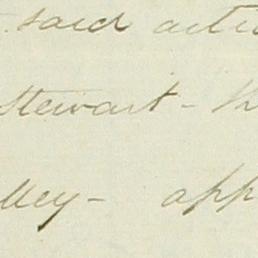 said actio
Stewart - h
lley - app